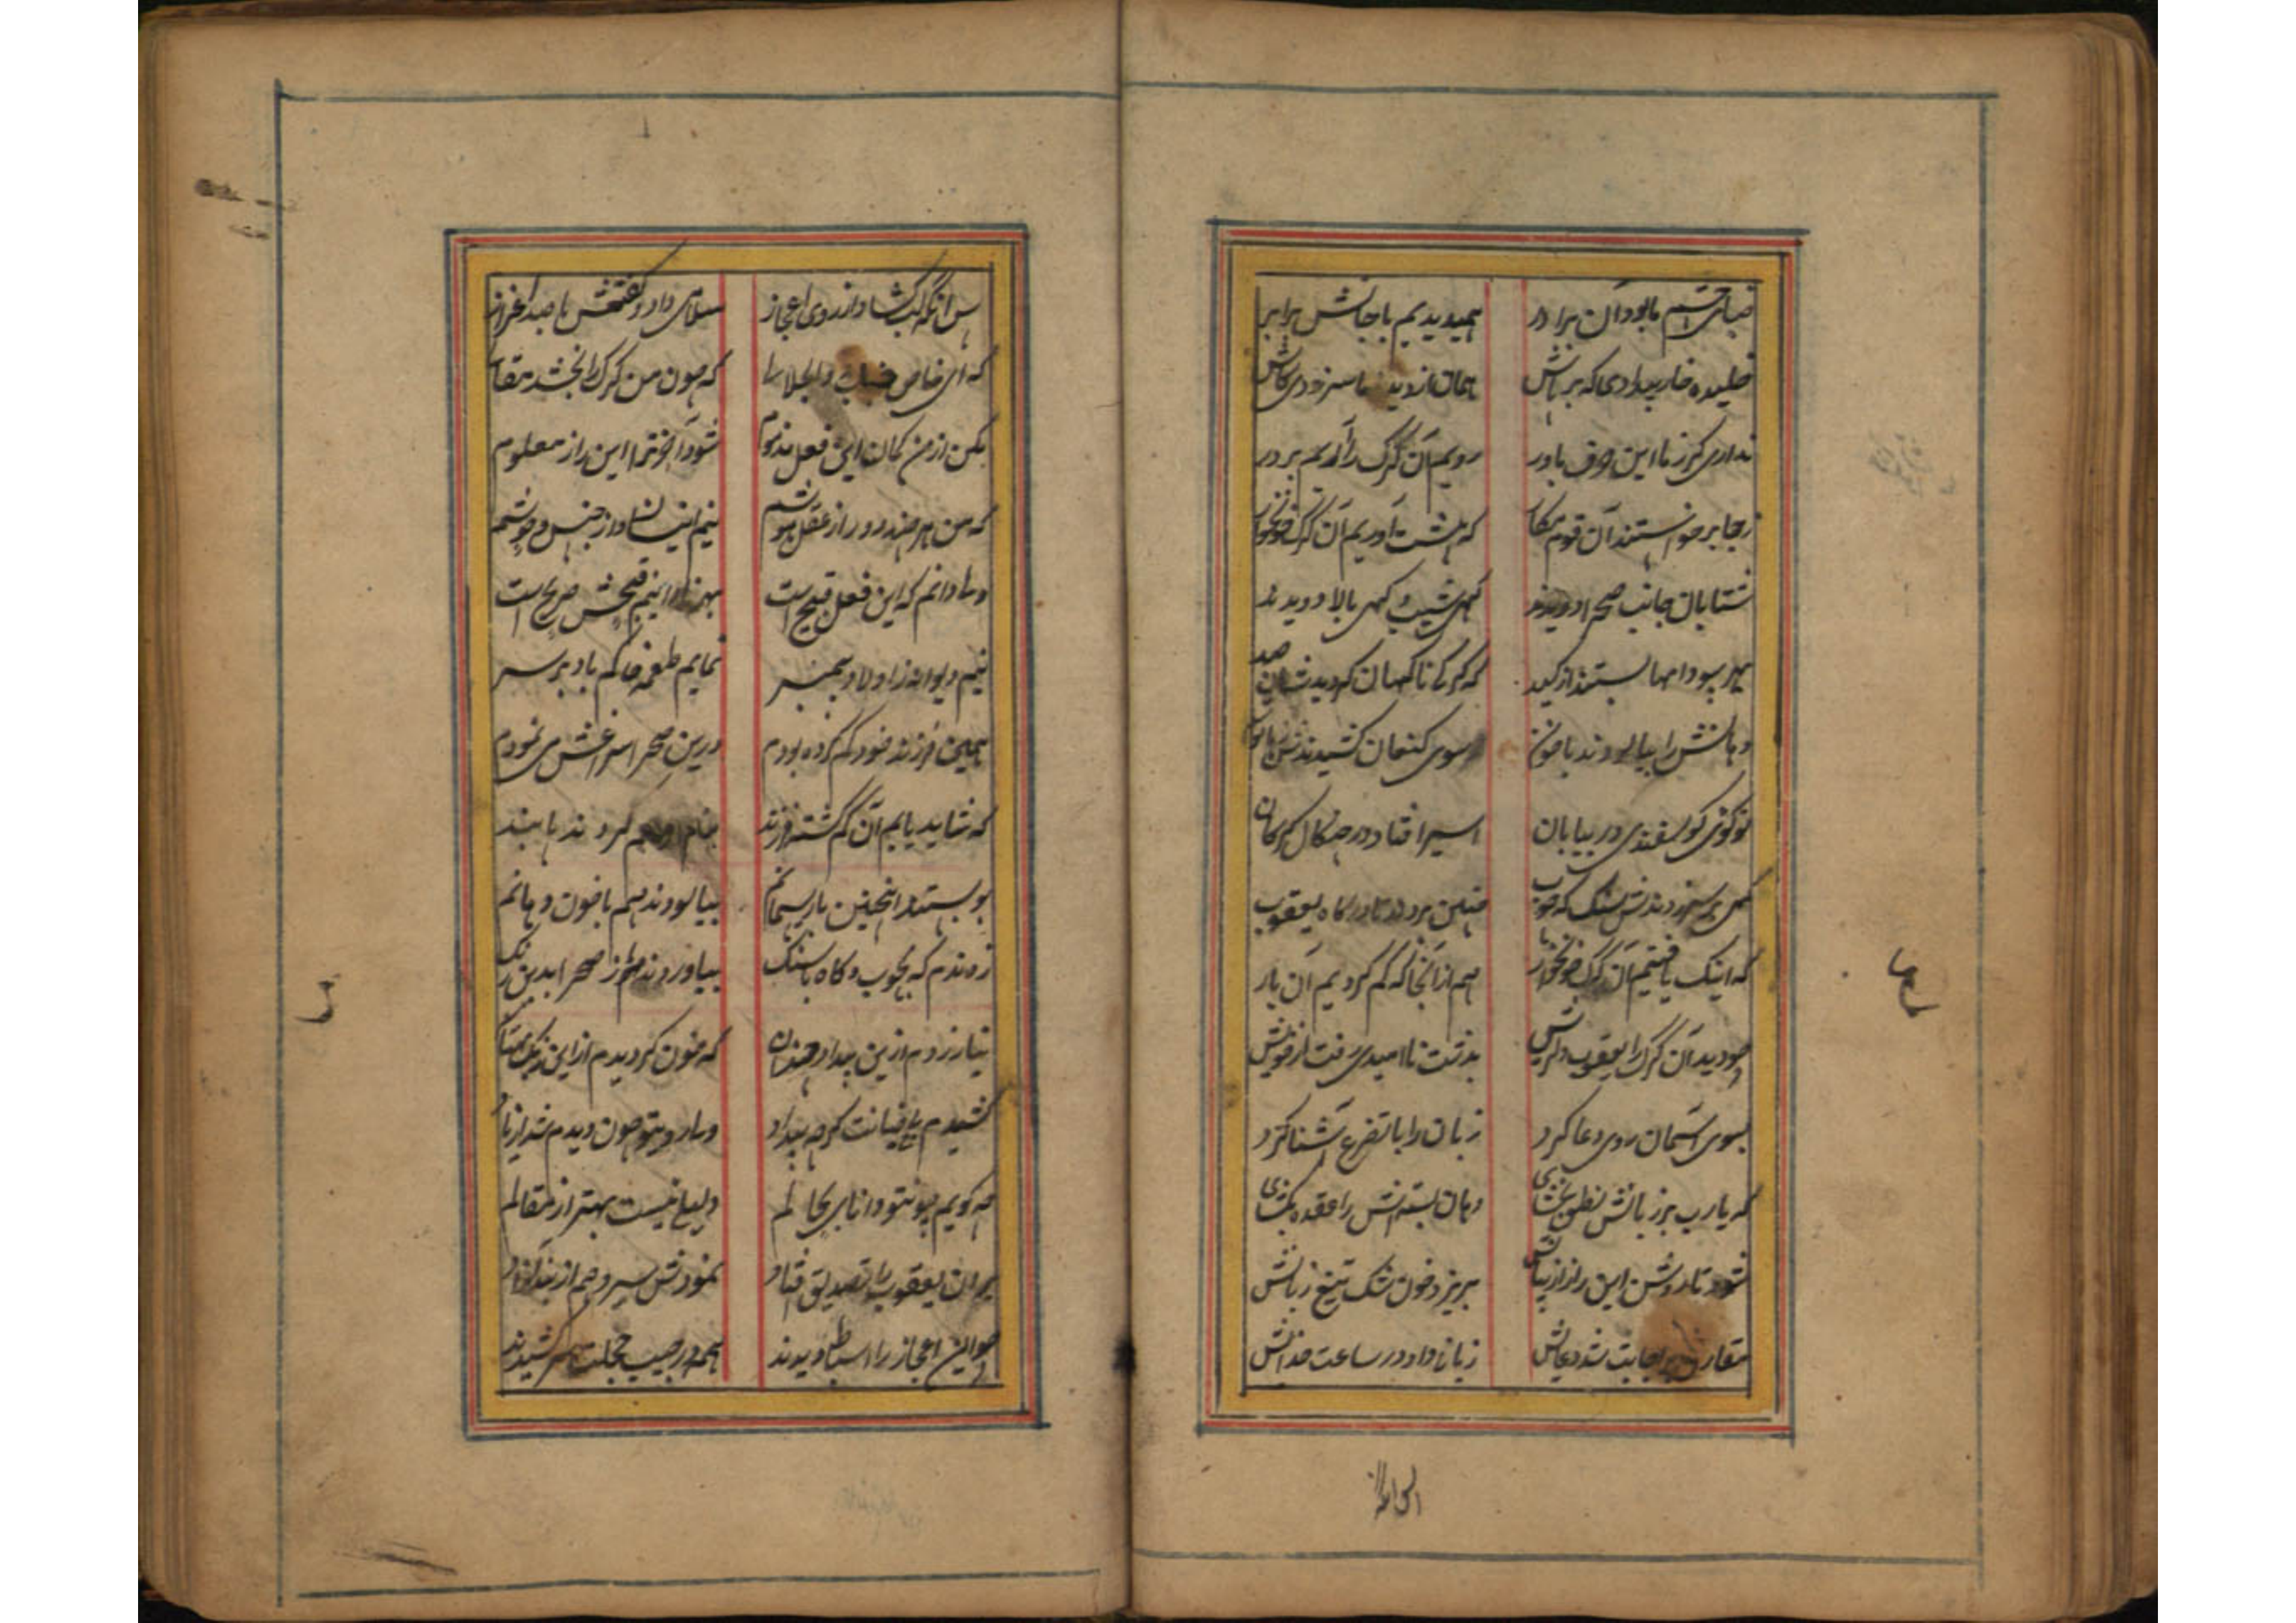 ضیای چشم ما بود آن برادر همیدیدیم با جانش برابر
خلیده خار بیدادی که بر پاش همان از دیده ما سر زدی کاش
نداری گر ز ما این حرف باور رویم آن گرگ را آریم بر در
ز جا برخواستند آن قوم مکار که پیشت آوریم آن گرگ خونخوار
شتابان جانب صحرا دویدند گهی شیب و گهی بالا دویدند
بهر سو دامها بستند از کید که گرگی ناگهان گردیدشان صید
دهانش را بیالودند با خون سوی کنعان کشیدندش
تو گوئی گوسفندی در بیابان اسیر افتاد در چنگال گرگان
گهی بر سر زدندش سنگ گه چوب چنین بردند تا درگاه یعقوب
که اینک یافتیم آن گرگ خونخوار هم از آنجا که گم کردیم آن یار
چو دید آن گرگ را یعقوب دلریش بدشت ناامیدی رفت از خویش
بسوی آسمان روی دعا کرد زبان را با تضرع آشنا کرد
که یارب بر زبانش نطق بخشای دهان بسته‌اش را عقده بگشای
شود تا روشن این راز از بیانش بریزد خون شک تیغ زبانش
مقارن اجابت شد دعایش زبان داد در ساعت خدایش
پس آنگه لب گشاد از روی اعجاز سلامی داد و گفتش با صد اعزاز
که ای خاص که چون من گرگ را بخشد
مکن از من گمان این فعل مذموم شود آخر ترا این راز معلوم
که من هر چند دور از عقل و هوشم نیم انسان و از جنس وحوشم
ولی دانم که این فعل قبیح است بهر قبحش صریح است
نیم دیوانه ز اولاد پیمبر نمایم طعمه خاکم باد بر سر
همین فرزند خود گم کرده بودم درین صحرا سراغش می نمودم
که شاید یابم آن گم گشته فرزند
چو بستند اینچنین با ریسمانم بیالودند هم با خون دهانم
زدندم گه بچوب و گاه با سنگ بیاوردند صحرا بدین رنگ
نیازردم ازین بیداد چندان که خون گردیدم از این
کشیدم خیانت گرچه بیداد ولی رویت چو دیدم شد از یاد
چه گویم چو تو دانای بحالم دلیلی نیست بهتر از مقالم
بر آن یعقوب را تصدیق افتاد نمودش سیر و هم از بند آزاد
چو این اعجاز را اسباط دیدند همه در جیب خجلت سر کشیدند